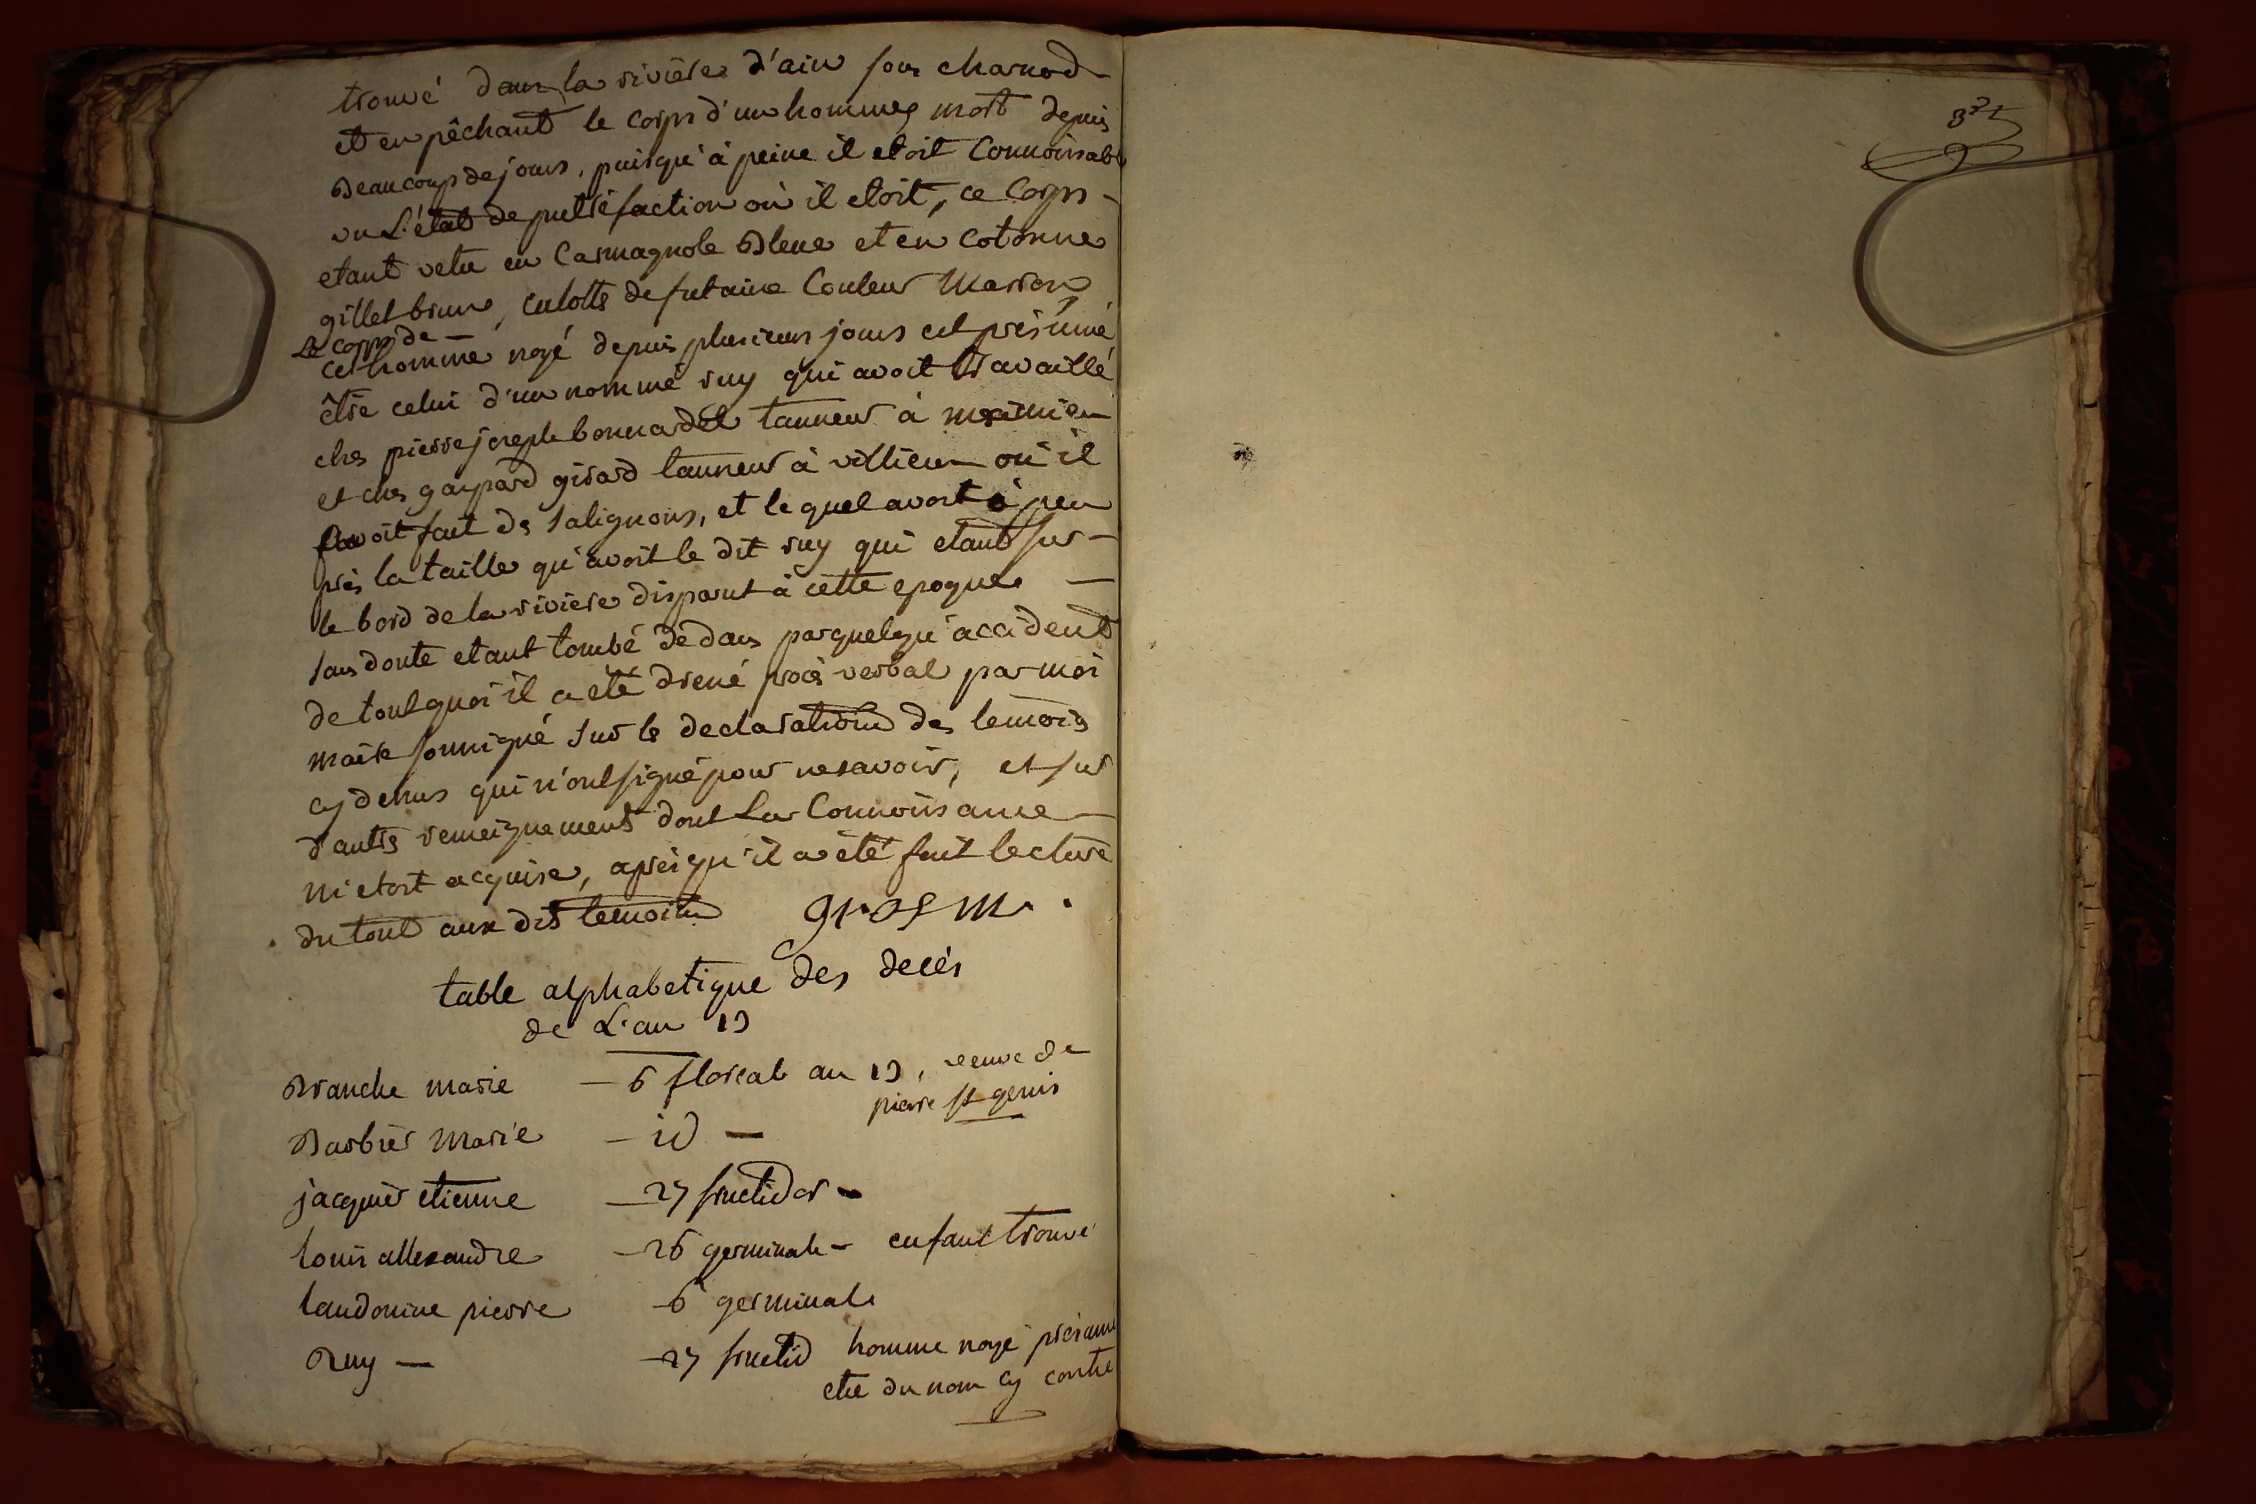 trouvé dans la rivière d'ain sous charnod
et en pêchant le corps d'un homme mort depuis
Beaucoup de jours, puisqu'à peine il etoit Connoissable
vu L'état de putréfaction où il etoit, ce Corps
etant vetu en Carmagnole Bleue et en Cotonne
gillet brun, culotte de futaine Couleur Marron,
Le corps de
cet homme noyé depuis plusieurs jours est présumé
être celui d'un nommé ruy qui avoit travaillé
ches pierre joseph bonnardel tanneur à meximieu
et ches gaspard girard tanneur à villieu où il
avoit fait des salignons, et le quel avoit à peu
près la taille qu'avoit le dit ruy qui etant sur
le bord de la rivière disparut à cette epoque
sans doute etant tombé dedans par quelqu'accident
de tout quoi il a été dressé procès verbal par moi
maire soussigné sur les declarations des temoins
cy dessus qui n'ont signé pour ne savoir, et sur
d'autres renseignements dont La Connoissance
m'etoit acquise, après qu'il a été fait lecture
du tout aux dits temoins gros m.
table alphabetique des decés
de L'an 13
Branche marie — 6 floreal an 13, veuve de
pierre st genis
Barbier Marie — id —
jacquier etienne — 27 fructidor —
louis allexandre — 26 germinal — enfant trouvé
laudonine pierre — 6 germinal
Ruy — — 27 fructid homme noyé présumé
etre du nom cy contre